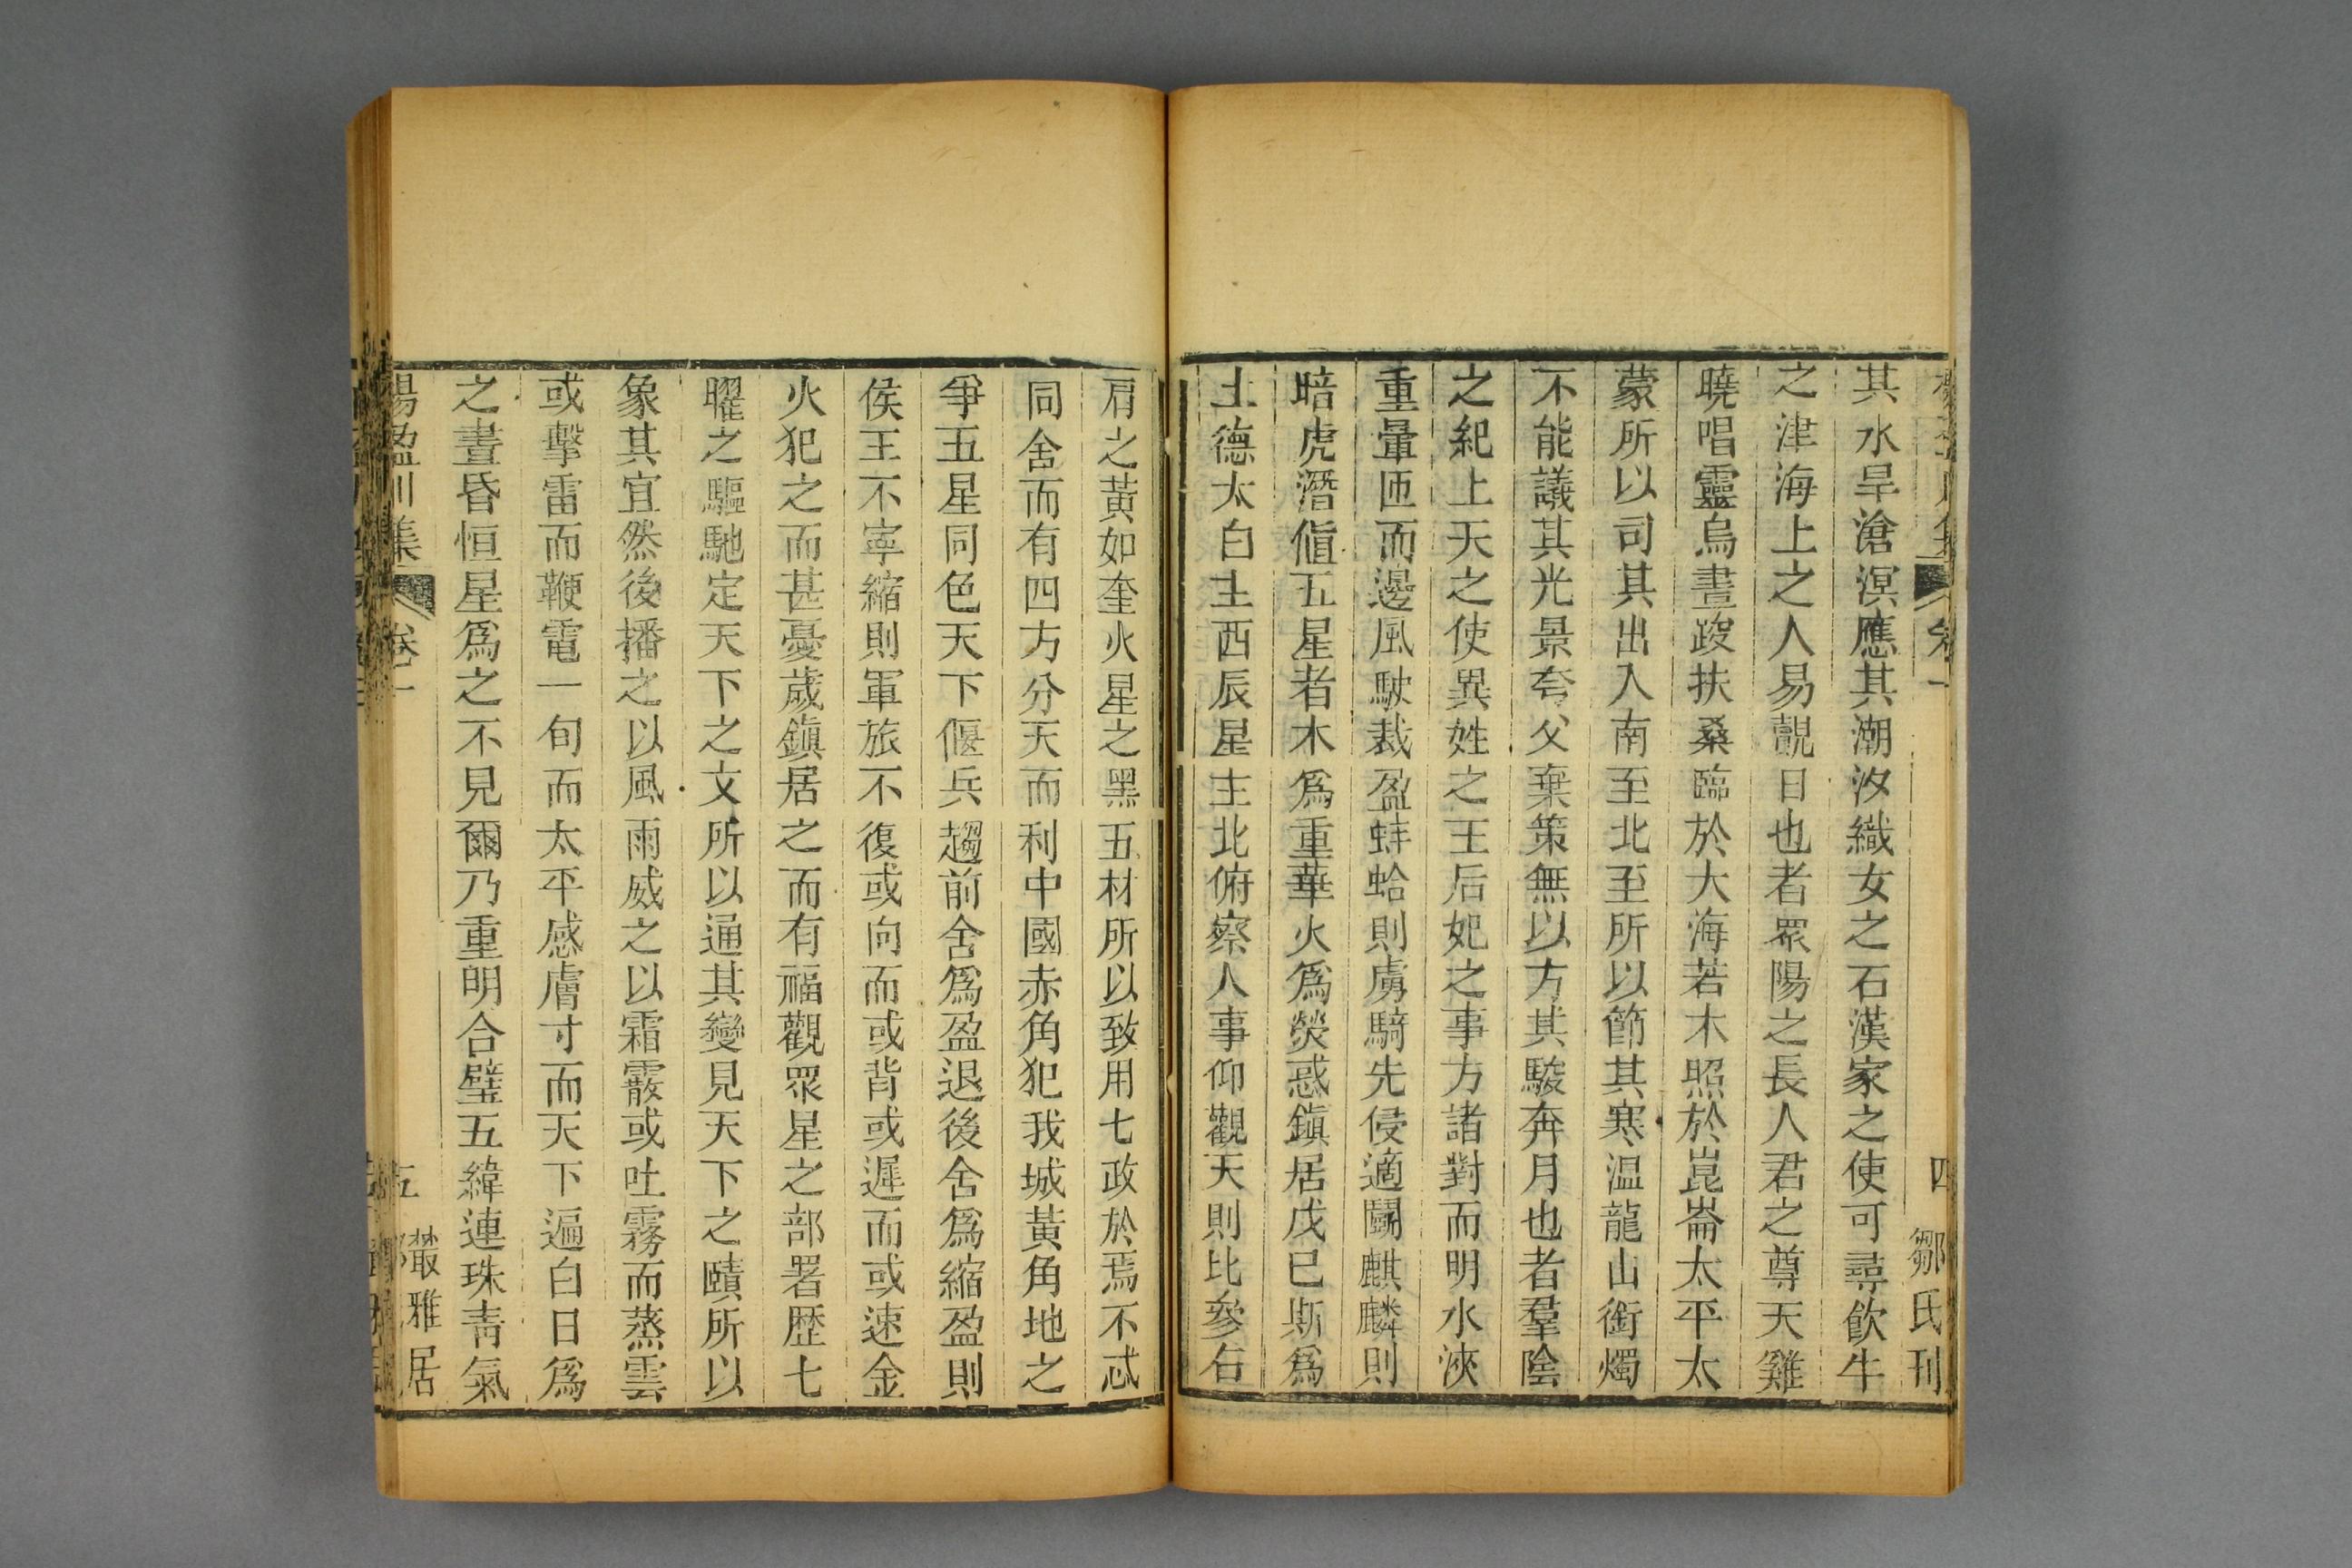 其水旱滄溟應其潮汐織女之石漢家之使可尋飲牛
之津海上之人易覩日也者眾陽之長人君之尊天雞
曉唱靈烏晝踆扶桑臨於大海若木照於崑崙太平太
蒙所以司其出入南至北至所以節其寒温龍山銜燭
不能議其光景夸父棄策無以方其駿奔月也者羣陰
之紀上天之使異姓之王后妃之事方諸對而明水浹
重暈匝而邊風駛裁盈蚌蛤則虜騎先侵適鬭麒麟則
暗虎潛值五星者木為重華火為熒惑鎮居戊巳斯為
土德太白主西辰星主北俯察人事仰觀天則比參右
肩之黃如奎火星之黑五材所以致用七政於焉不忒
同舍而有四方分天而利中國赤角犯我城黃角地之
爭五星同色天下偃兵趨前舍為盈退後舍為縮盈則
侯王不寧縮則軍旅不復或向而或背或遲而或速金
火犯之而甚憂歲鎮居之而有福觀眾星之部署歴七
曜之驅馳定天下之文所以通其變見天下之賾所以
象其宜然後播之以風雨威之以霜霰或吐霧而蒸雲
或擊雷而鞭電一旬而太平感膚寸而天下遍白日為
之晝昏恒星為之不見爾乃重明合璧五緯連珠靑氣
楊盈川集 卷一 五 叢雅居
卷一 四 鄒氏刊